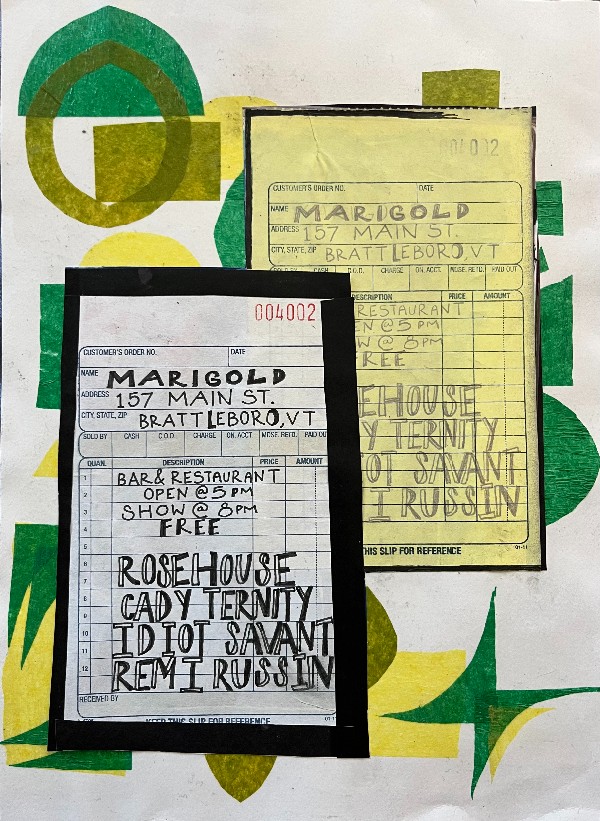 004002
CUSTOMER'S ORDER NO. DATE
NAME MARIGOLD
ADDRESS 157 MAIN ST.
CITY, STATE, ZIP BRATTLEBORO, VT
SOLD BY CASH C.O.D. CHARGE ON. ACCT. MDSE. RETD. PAID OUT
DESCRIPTION PRICE AMOUNT
RESTAURANT
EN @ 5 PM
W @ 8PM
FREE
EHOUSE
Y TERNITY
IOT SAVANT
I RUSSIN
THIS SLIP FOR REFERENCE 01-11
004002
CUSTOMER'S ORDER NO. DATE
NAME MARIGOLD
ADDRESS 157 MAIN ST.
CITY, STATE, ZIP BRATTLEBORO, VT
SOLD BY CASH C.O.D. CHARGE ON. ACCT. MDSE. RETD. PAID OU
QUAN. DESCRIPTION PRICE AMOUNT
1 BAR & RESTAURANT
2 OPEN @ 5 PM
3 SHOW @ 8PM
4 FREE
5
6 ROSEHOUSE
7
8 CADY TERNITY
9
10 IDIOT SAVANT
11
12 REMI RUSSIN
RECEIVED BY
KEEP THIS SLIP FOR REFERENCE